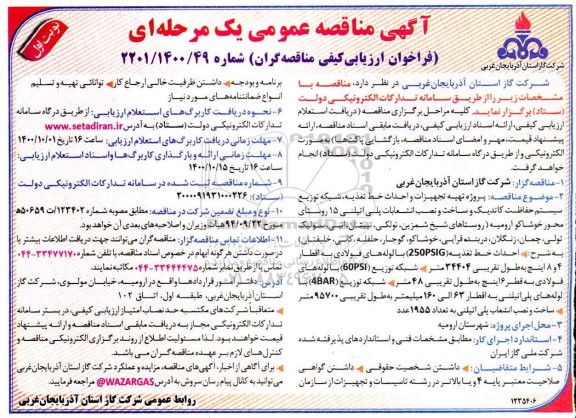 آگهی مناقصه عمومی یک مرحله‌ای
(فراخوان ارزیابی‌کیفی مناقصه‌گران) شماره ۲۲۰۱/۱۴۰۰/۴۹
نوبت اول
شرکت گاز استان آذربایجان غربی
شرکت گاز استان آذربایجان‌غربی در نظر دارد، مناقصه با
مشخصات زیر را از طریق سامانه تدارکات الکترونیکی دولت
(ستاد) برگزار نماید. کلیه مراحل برگزاری مناقصه (دریافت استعلام
ارزیابی کیفی، ارائه اسناد ارزیابی کیفی، دریافت مابقی اسناد مناقصه، ارائه
پیشنهاد قیمت، مهر و امضای اسناد مناقصه، بازگشایی پاکتها) بصورت
الکترونیکی و از طریق درگاه سامانه تدارکات الکترونیکی دولت (ستاد) انجام
خواهد گرفت.
۱- مناقصه‌گزار: شرکت گاز استان آذربایجان غربی
۲- موضوع مناقصه: پروژه تهیه تجهیزات و احداث خط تغذیه، شبکه توزیع
سیستم حفاظت کاتدیک و ساخت و نصب انشعابات پلی اتیلنی ۱۵ روستای
محور خوشاکو ارومیه (روستاهای شیخ شمزین، تولکی،
تولی، چمان، زنگلان، دربند قرایی، خوشاکو، گوجار، حلقله، کانی، خلیفتان)
به شرح: - احداث خط تغذیه (250PSIG) با لوله‌های فولادی به اقطار
۴ و ۸ اینچ به‌طول تقریبی ۳۴۴۰۴ متر - شبکه توزیع (60PSI) با لوله‌های
فولادی به قطر ۶ اینچ به‌طول تقریبی ۴۸ متر - شبکه توزیع (4BAR) با
لوله‌های پلی‌اتیلنی به اقطار ۶۳ الی ۱۶۰ میلیمتر به‌طول تقریبی ۹۵۷۰۰ متر
- ساخت و نصب انشعاب پلی اتیلنی به تعداد ۱۹۵۵ عدد
۳- محل اجرای پروژه: شهرستان ارومیه
۴- استاندارد اجرای کار: مطابق مشخصات فنی و استانداردهای پذیرفته شده
شرکت ملی گاز ایران
۵- شرایط متقاضیان: - داشتن شخصیت حقوقی - داشتن گواهی
صلاحیت معتبر پایه ۴ و یا بالاتر در رشته تاسیسات و تجهیزات از سازمان
برنامه و بودجه - داشتن ظرفیت خالی ارجاع کار - توانائی تهیه و تسلیم
انواع ضمانتنامه‌های مورد نیاز
۶- نحوه دریافت کاربرگ‌های استعلام ارزیابی: از طریق درگاه سامانه
تدارکات الکترونیکی دولت (ستاد) به آدرس www.setadiran.ir
۷- مهلت زمانی دریافت کاربرگ‌های استعلام ارزیابی: ساعت ۱۶ تاریخ ۱۴۰۰/۱۰/۰۱
۸- مهلت زمانی ارائه و بارگذاری کاربرگ‌ها و اسناد استعلام ارزیابی:
ساعت ۱۶ تاریخ ۱۴۰۰/۱۰/۱۵
۹- شماره مناقصه ثبت شده در سامانه تدارکات الکترونیکی دولت
(ستاد): ۲۰۰۰۰۹۱۹۳۱۰۰۰۲۲۶
۱۰- نوع و مبلغ تضمین شرکت در مناقصه: مطابق مصوبه شماره ۱۲۳۴۰۲/ت ۵۰۶۵۹ه
مورخ ۹۴/۰۹/۲۲ هیات وزیران و اصلاحیه‌های بعدی آن خواهد بود.
۱۱- اطلاعات تماس مناقصه گزار: مناقصه‌گران می‌توانند جهت دریافت اطلاعات بیشتر یا
در صورت داشتن هر گونه ابهام در خصوص اسناد مناقصه، با تلفن شماره ۳۳۴۷۷۱۷۰-۰۴۴
تماس یا از طریق نمابر شماره ۳۳۴۴۴۴۷۵-۰۴۴ مکاتبه نمایند.
آدرس: دفتر امور قراردادها واقع در ارومیه، خیابان مولوی، شرکت گاز
استان آذربایجان غربی، طبقه اول، اتاق ۱۰۲
- متعاقباً شرکت‌های مکتسبه حد نصاب امتیاز ارزیابی کیفی، در بستر سامانه
تدارکات الکترونیکی مجاز به دریافت مابقی اسناد مناقصه و ارائه پیشنهاد
قیمت خواهند بود. لذا مسئولیت اطلاع از روند برگزاری الکترونیکی مناقصه و
کنترل‌های لازم بر عهده مناقصه گران می باشد.
برای آگاهی از اخبار، آگهی‌های مناقصه، مزایده و عملکرد شرکت گاز استان آذربایجان‌غربی
می‌توانید به کانال پیام رسان سروش به آدرس WAZARGAS@ مراجعه فرمایید.
روابط عمومی شرکت گاز استان آذربایجان‌غربی
۱۲۳۵۴۰۶